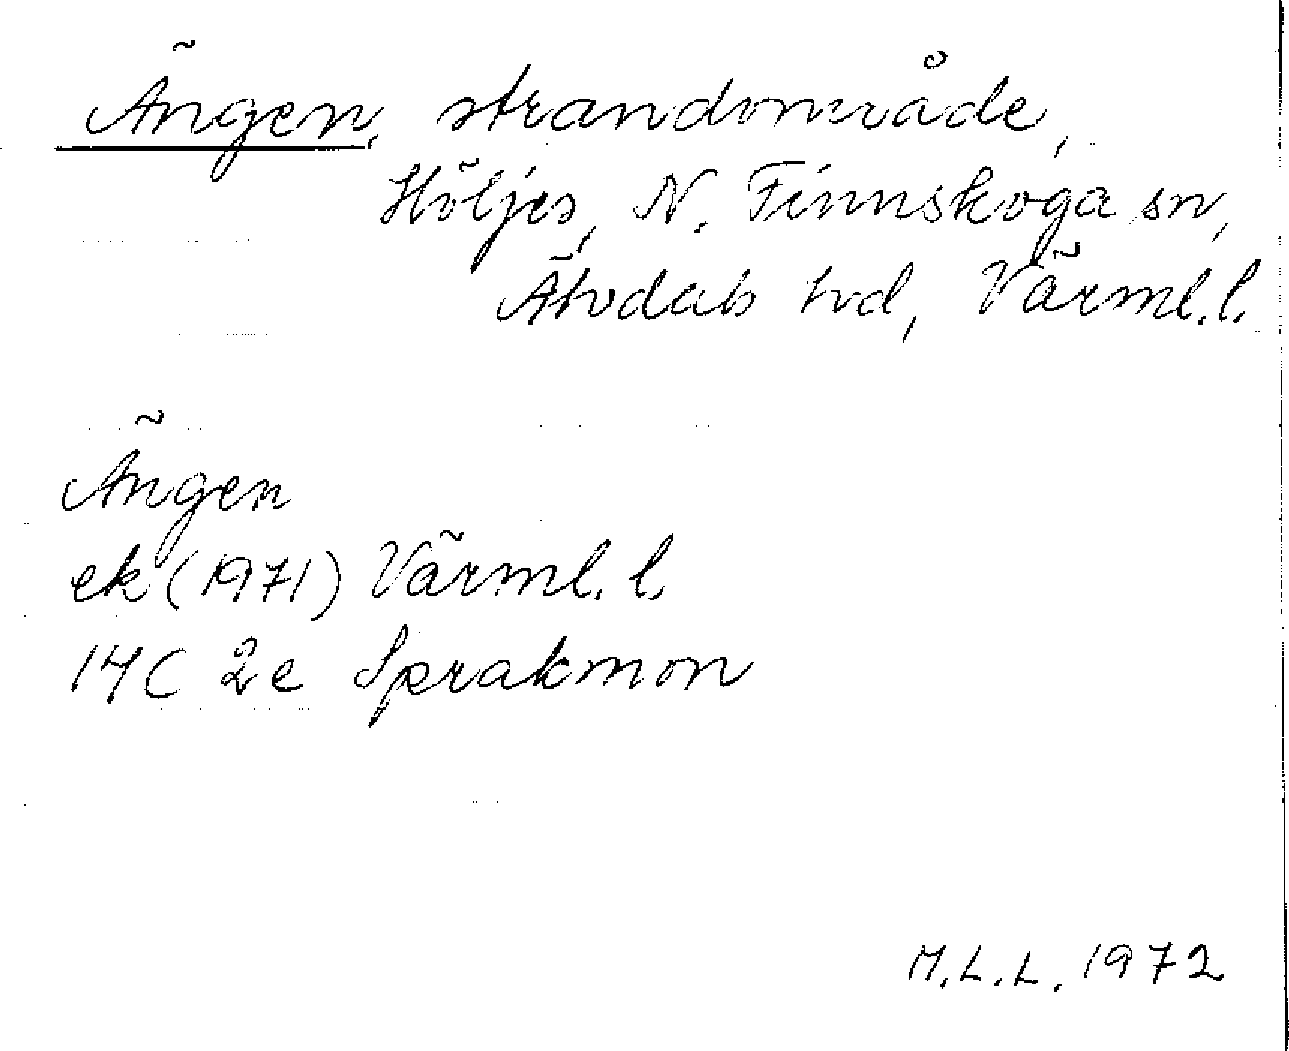 Ängen, strandområde,
Höljes, N. Finnskoga sn,
Älvdals hd, Värml. l.
Ängen
ek (1971) Värml. l.
14C 2e Sprakmon
M.L.L. 1972